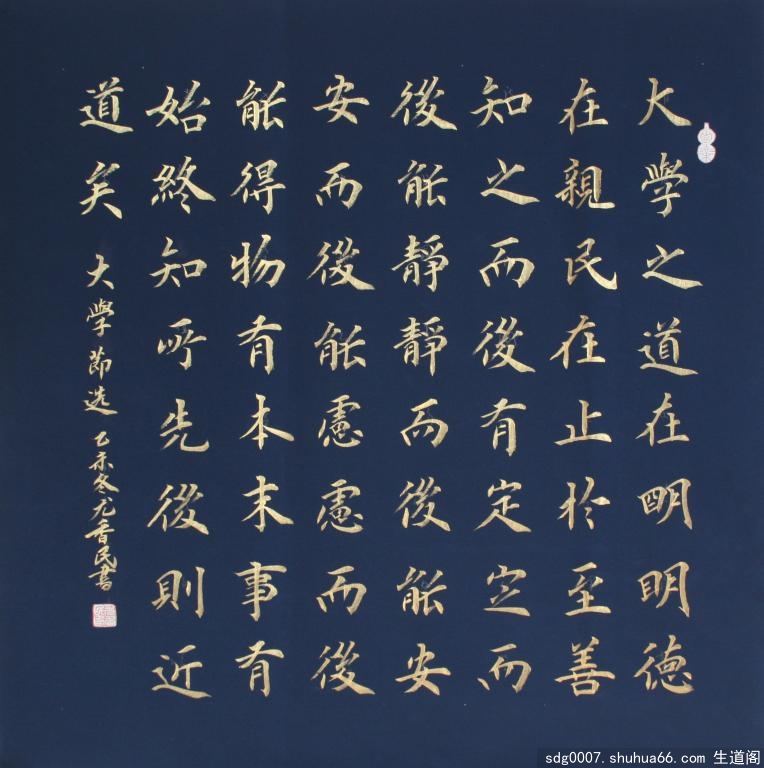 大學之道在明明德
在親民在止於至善
知之而後有定定而
後能靜靜而後能安
安而後能慮慮而後
能得物有本末事有
始終知所先後則近
道矣
大學節选 乙未冬尤香民書
sdg0007.shuhua66.com 生道阁